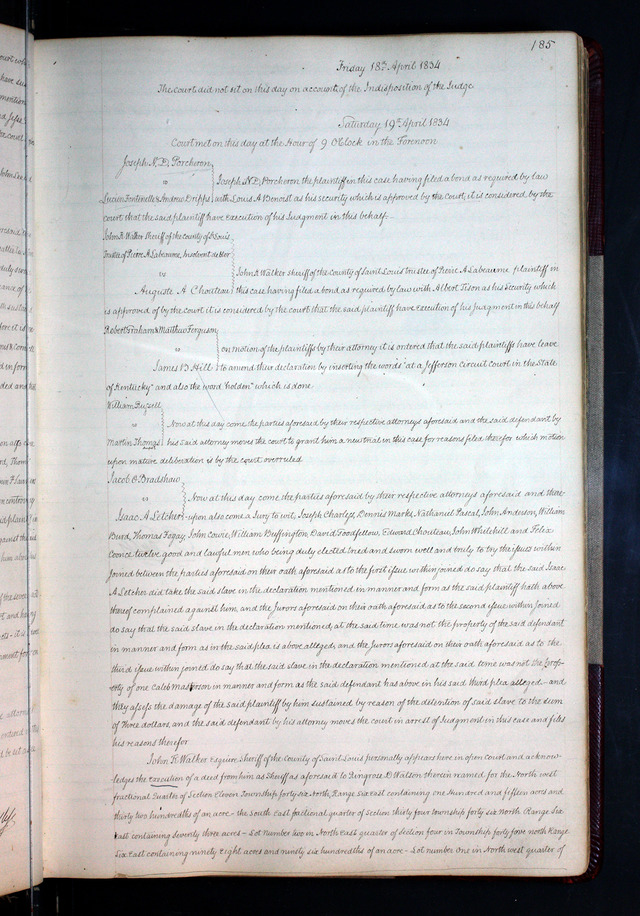 185
Friday 18th April 1834
The court did not sit on this day on account of the Indisposition of the Judge
Saturday 19th April 1834
Court met on this day at the Hour of 9 O'Clock in the Forenoon
Joseph N.D. Porcheron
vs
Joseph N.D. Porcheron the plaintiff in this case having filed a bond as required by law
Lucien Fontenelle & Andrew Dripps with Louis A Benoist as his security which is approved by the court, it is considered by the
court that the said plaintiff have Execution of his Judgment in this behalf.
John K Walker Sheriff of the county of St Louis
Trustee of Pierre A Labeaume, Insolvent debtor
vs
John K Walker sheriff of the county of Saint Louis trustee of Pierre A Labeaume plaintiff in
Auguste A Chouteau this case having filed a bond as required by law with Albert Tison as his security which
is approved of by the court it is considered by the court that the said plaintiff have execution of his Judgment in this behalf
Robert Graham & Matthew Ferguson
vs
on motion of the plaintiffs by their attorney it is ordered that the said plaintiffs have leave
James B Hill to amend their declaration by inserting the words "at a Jefferson circuit court in the State
of Kentucky" and also the word "holden" which is done
William Russell
vs
Now at this day come the parties aforesaid by their respective attorneys aforesaid and the said defendant by
Martin Thomas his said attorney moves the court to grant him a new trial in this case for reasons filed therefor which motion
upon mature deliberation is by the court overruled
Jacob O Bradshaw
vs
Now at this day come the parties aforesaid by their respective attorneys aforesaid and there
Isaac A Letcher upon also come a Jury to wit, Joseph Charless, Dennis Marks, Nathaniel Pascal, John Anderson, William
Burd, Thomas Fagay, John Lowe, William Buffington David Goodfellow, Edward Chouteau, John Whitehill and Felix
Coonce twelve good and lawful men who being duly elected tried and sworn well and truly to try the issues within
Joined between the parties aforesaid on their oath aforesaid as to the first issue within joined do say that the said Isaac
A Letcher did take the said slave in the declaration mentioned in manner and form as the said plaintiff hath above
thereof complained against him; and the Jurors aforesaid on their oath aforesaid as to the second issue within Joined
do say that the said slave in the declaration mentioned, at the said time was not the property of the said defendant
in manner and form as in the said plea is above alleged; and the Jurors aforesaid on their oath aforesaid as to the
third issue within joined do say that the said slave in the declaration mentioned at the said time was not the prop-
erty of one Caleb Masterson in manner and form as the said defendant has above in his said third plea alleged and
they assess the damage of the said plaintiff by him sustained by reason of the detention of said slave to the sum
of three dollars, and the said defendant by his attorney moves the court in arrest of Judgment in this case and files
his reasons therefor
John K. Walker Esquire Sheriff of the County of Saint Louis personally appears here in open court and acknow-
ledges the Execution of a deed from him as Sheriff as aforesaid to Ringrose D Watson therein named for the North west
fractional Quarter of Section Eleven Township forty six North, Range Six East containing one Hundred and fifteen acres and
thirty two hundredths of an acre - the South East factional quarter of Section thirty four township forty six North Range Six
East containing seventy three acres - Lot Number two in North East quarter of Section four in Township forty four north Range
Six East containing ninety Eight acres and ninety six hundredths of an acre - Lot number one in North west quarter of